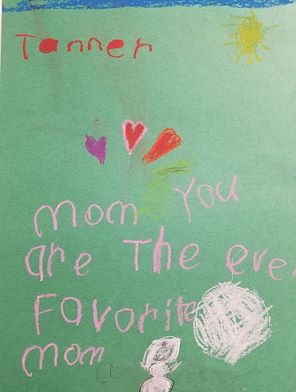 Tanner
mom You
are The ever
Favorite
mom